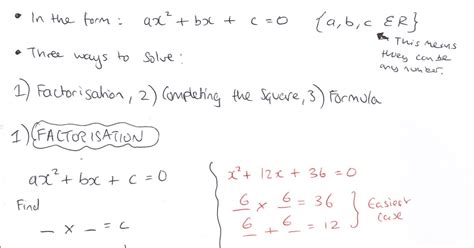 • In the form: ax² + bx + c = 0 {a, b, c ∈ R}
This means they can be any number.
• Three ways to solve:
1) Factorisation, 2) Completing the Square, 3) Formula
1) FACTORISATION
ax² + bx + c = 0
Find
_ x _ = c
x² + 12x + 36 = 0
6 x 6 = 36
6 + 6 = 12
} Easiest case